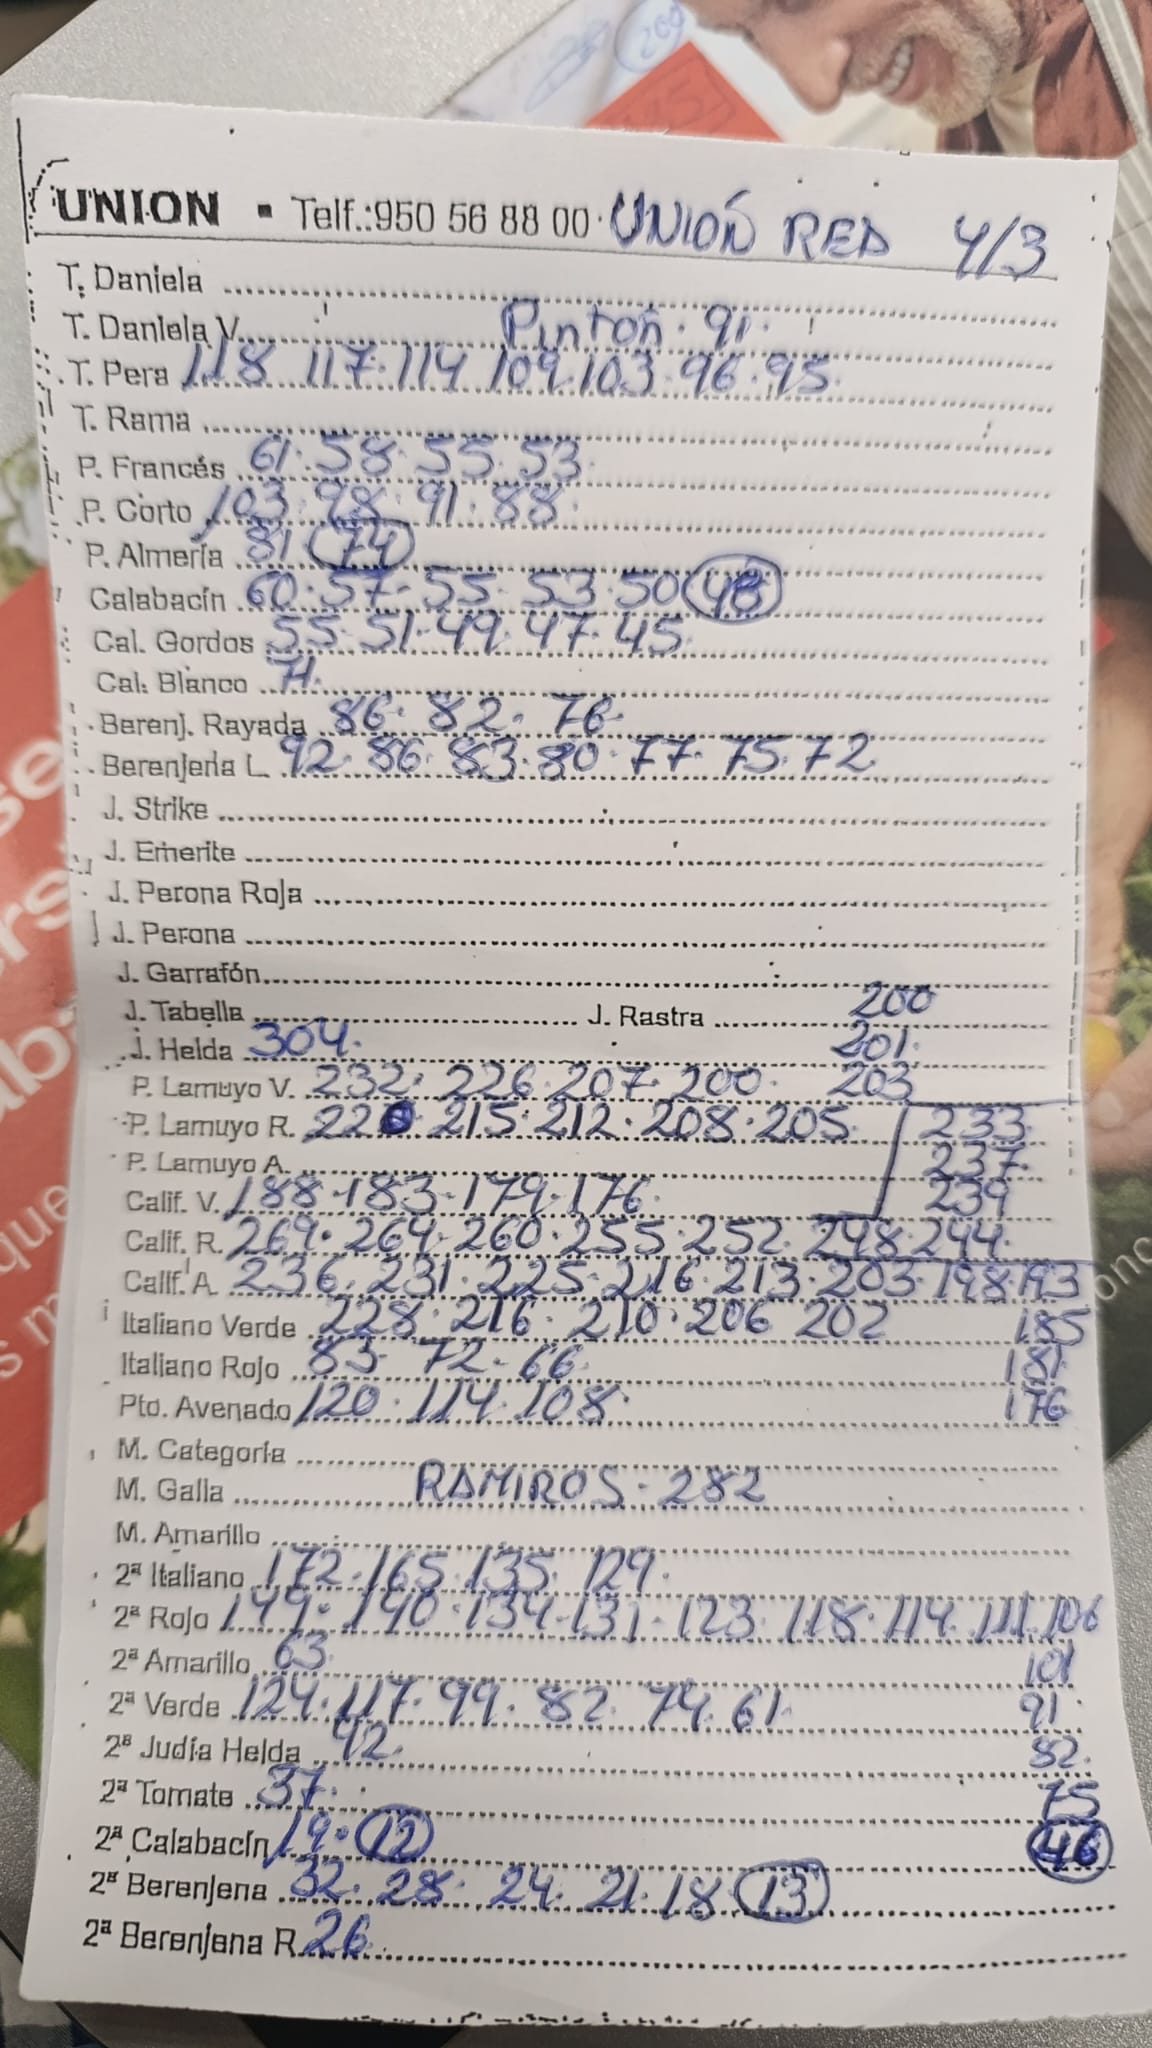 UNION ▪ Telf.:950 56 88 00 · UNIÓN RED 4/3
T. Daniela
T. Daniela V. Pinton · 91 ·
T. Pera 118 117 · 114 109 · 103 · 96 · 95
T. Rama
P. Francés 61 · 58 · 55 · 53
P. Corto 103 · 98 · 91 · 88
P. Almería 81 74
Calabacín 60 · 57 · 55 · 53 · 50 48
Cal. Gordos 55 · 51 · 49 · 47 · 45
Cal. Blanco 71.
Berenj. Rayada 86 · 82 · 76
Berenjena L. 92 · 86 · 83 · 80 · 77 · 75 · 72
J. Strike
J. Emerite
J. Perona Roja
J. Perona
J. Garrafón
J. Tabella J. Rastra 200
J. Helda 304. 201.
P. Lamuyo V. 232 · 226 · 207 · 200 · 203
P. Lamuyo R. 220 · 215 · 212 · 208 · 205 233
P. Lamuyo A. 237
Calif. V. 188 · 183 · 179 · 176 239
Calif. R. 269 · 264 · 260 · 255 · 252 · 248 · 244
Calif. A 236 · 231 · 225 · 216 · 213 · 203 · 198 · 193
Italiano Verde 228 · 216 · 210 · 206 202 185
Italiano Rojo 83 · 72 · 66 181
Pto. Avenado 120 · 114 · 108 · 176
M. Categoría
M. Galla RAMIROS · 282
M. Amarillo
2ª Italiano 172 · 165 · 135 · 129
2ª Rojo 149 · 140 · 134 · 131 · 123 · 118 · 114 · 111 · 106
2ª Amarillo 63 101
2ª Verde 124 · 117 · 99 · 82 · 74 · 61 91
2ª Judía Helda 92 82
2ª Tomate 37 75
2ª Calabacín 19 · 12 46
2ª Berenjena 32 · 28 · 24 · 21 · 18 13
2ª Berenjena R. 26